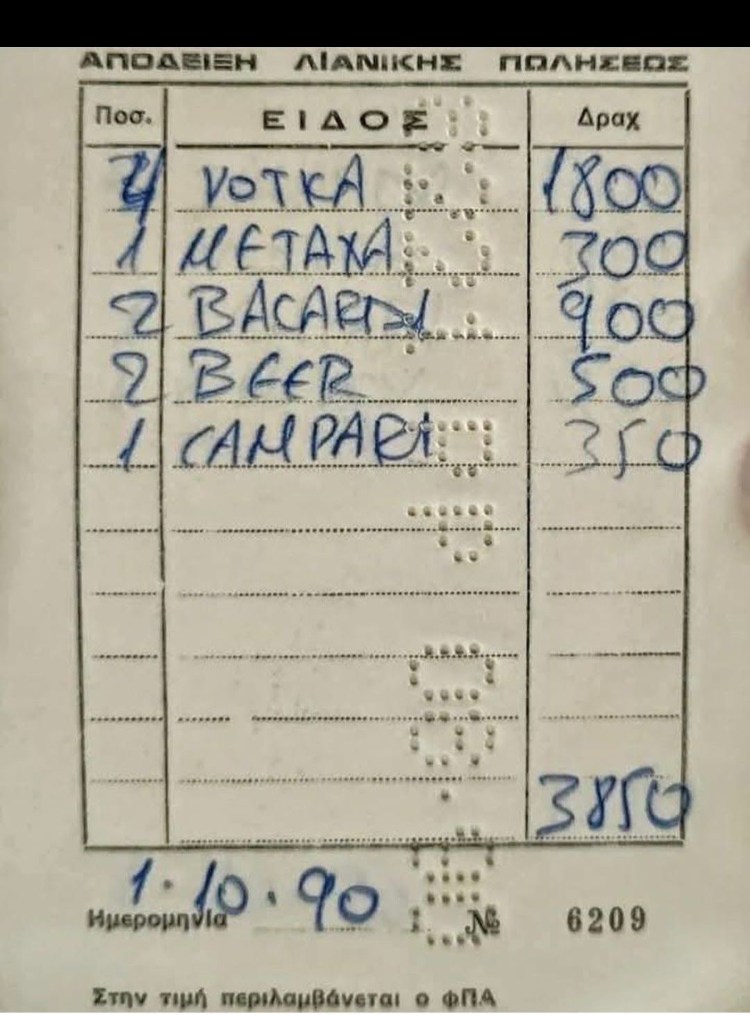 ΑΠΟΔΕΙΞΗ ΛΙΑΝΙΚΗΣ ΠΩΛΗΣΕΩΣ
Ποσ. ΕΙΔΟΣ Δραχ
4 VOTKA 1800
1 METAXA 300
2 BACARDI 900
2 BEER 500
1 CAMPARI 350
3850
1·10·90
Ημερομηνία № 6209
Στην τιμή περιλαμβάνεται ο φΠΑ